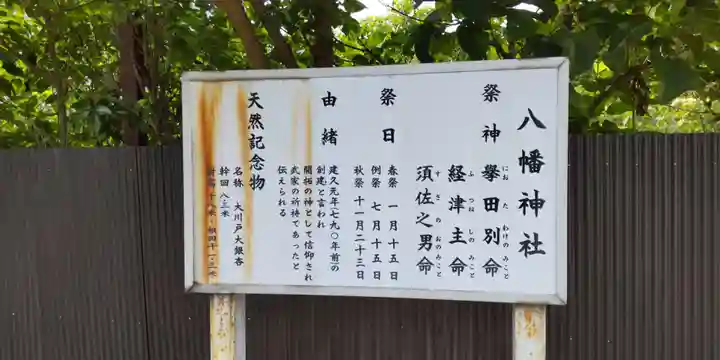 八幡神社
祭神 誉田別命
経津主命
ふつねしのみこと
須佐之男命
すさのおのみこと
祭日
春祭 一月十五日
例祭 七月十五日
秋祭 十一月二十三日
由緒
建久元年(七九〇年前)の
創建と言われ
開拓の神として信仰され
武家の祈祷であったと
伝えられる
天然記念物
名称 大川戸大銀杏
幹回 八・三米